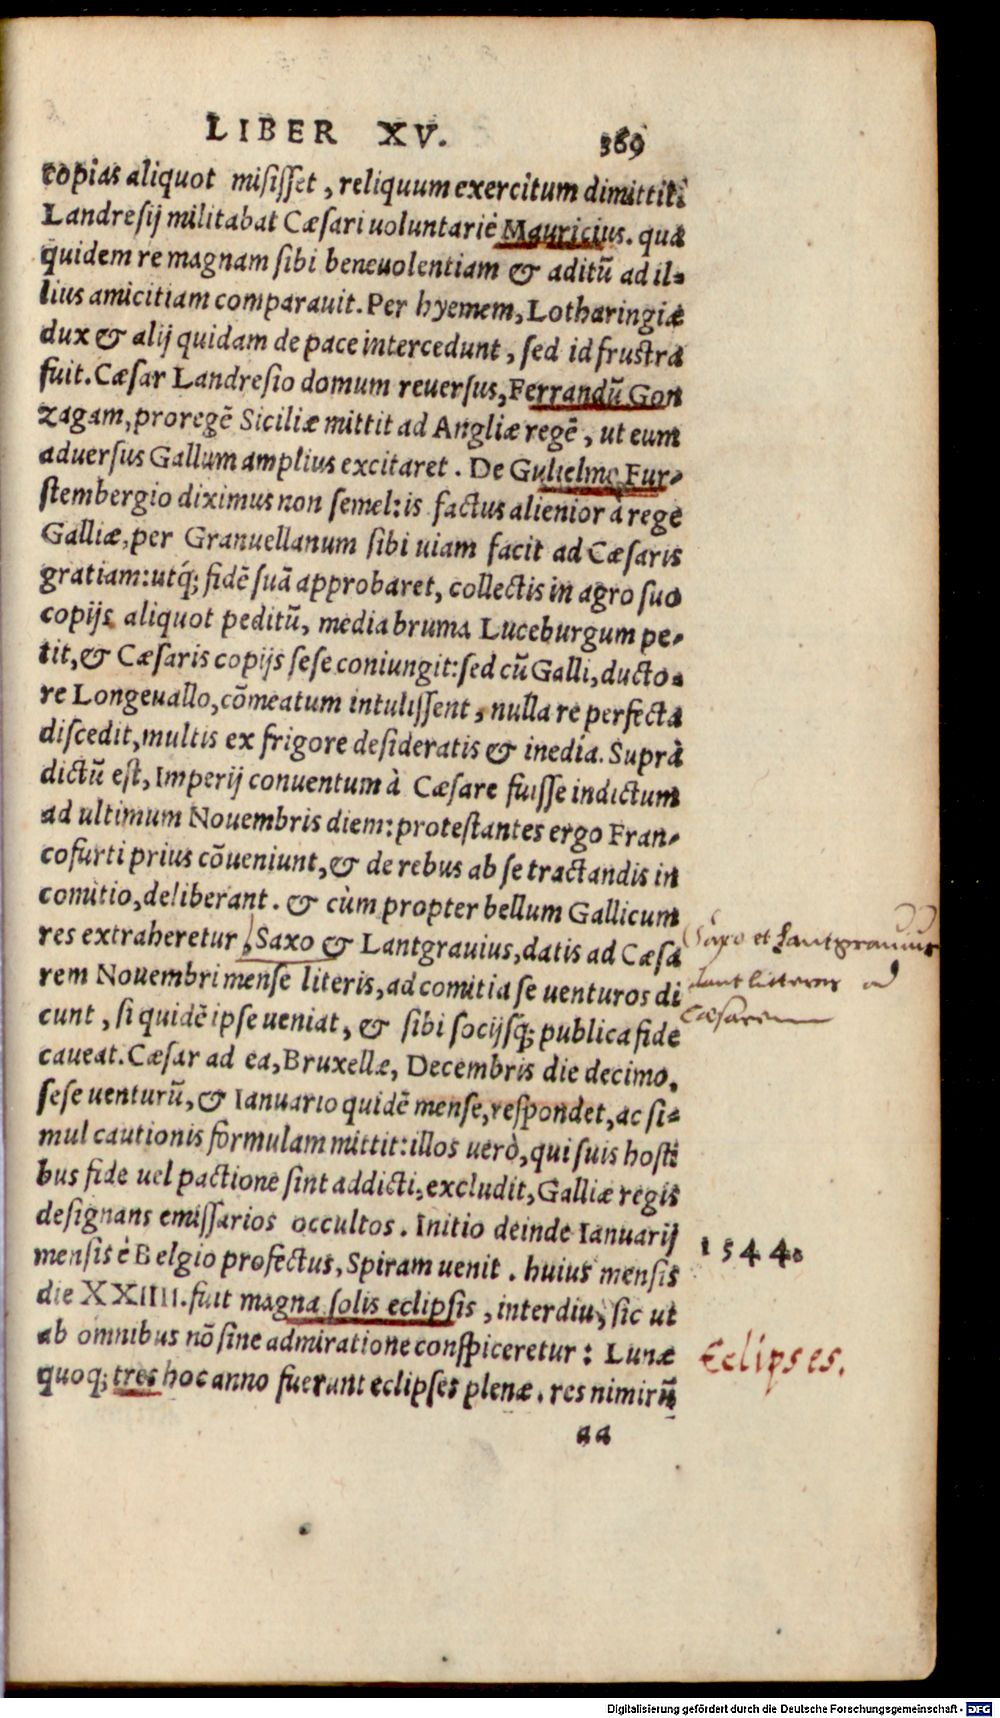 LIBER XV. 369
copias aliquot misisset, reliquum exercitum dimittit.
Landresij militabat Cæsari uoluntariè Mauricius. qua
quidem re magnam sibi beneuolentiam & aditũ ad il-
lius amicitiam comparauit. Per hyemem, Lotharingiæ
dux & alij quidam de pace intercedunt, sed id frustra
fuit. Cæsar Landresio domum reuersus, Ferrandũ Gon
zagam, proregẽ Siciliæ mittit ad Angliæ regẽ, ut eum
aduersus Gallum amplius excitaret. De Gulielmo Fur-
stembergio diximus non semel: is factus alienior à rege
Galliæ, per Granuellanum sibi uiam facit ad Cæsaris
gratiam: utq́; fidẽ suã approbaret, collectis in agro suo
copijs aliquot peditũ, media bruma Luceburgum pe-
tit, & Cæsaris copijs sese coniungit: sed cũ Galli, ducto-
re Longeuallo, cõmeatum intulissent, nulla re perfecta
discedit, multis ex frigore desideratis & inedia. Suprà
dictũ est, Imperij conuentum à Cæsare fuisse indictum
ad ultimum Nouembris diem: protestantes ergo Fran-
cofurti prius cõueniunt, & de rebus ab se tractandis in
comitio, deliberant. & cùm propter bellum Gallicum
res extraheretur, Saxo & Lantgrauius, datis ad Cæsa
rem Nouembri mense literis, ad comitia se uenturos di
cunt, si quidẽ ipse ueniat, & sibi socijsq́; publica fide
caueat. Cæsar ad ea, Bruxellæ, Decembris die decimo,
sese uenturũ, & Ianuario quidẽ mense, respondet, ac si-
mul cautionis formulam mittit: illos uerò, qui suis hosti
bus fide uel pactione sint addicti, excludit, Galliæ regis
designans emissarios occultos. Initio deinde Ianuarij
mensis è Belgio profectus, Spiram uenit. huius mensis
die XXIIII. fuit magna solis eclipsis, interdiu, sic ut
ab omnibus nõ sine admiratione conspiceretur: Lunæ
quoq; tres hoc anno fuerunt eclipses plenæ. res nimirũ
aa
Saxo et Lantgrauius
dant litteras ad
Cæsarem
1544.
Eclipses.
Digitalisierung gefördert durch die Deutsche Forschungsgemeinschaft - DFG